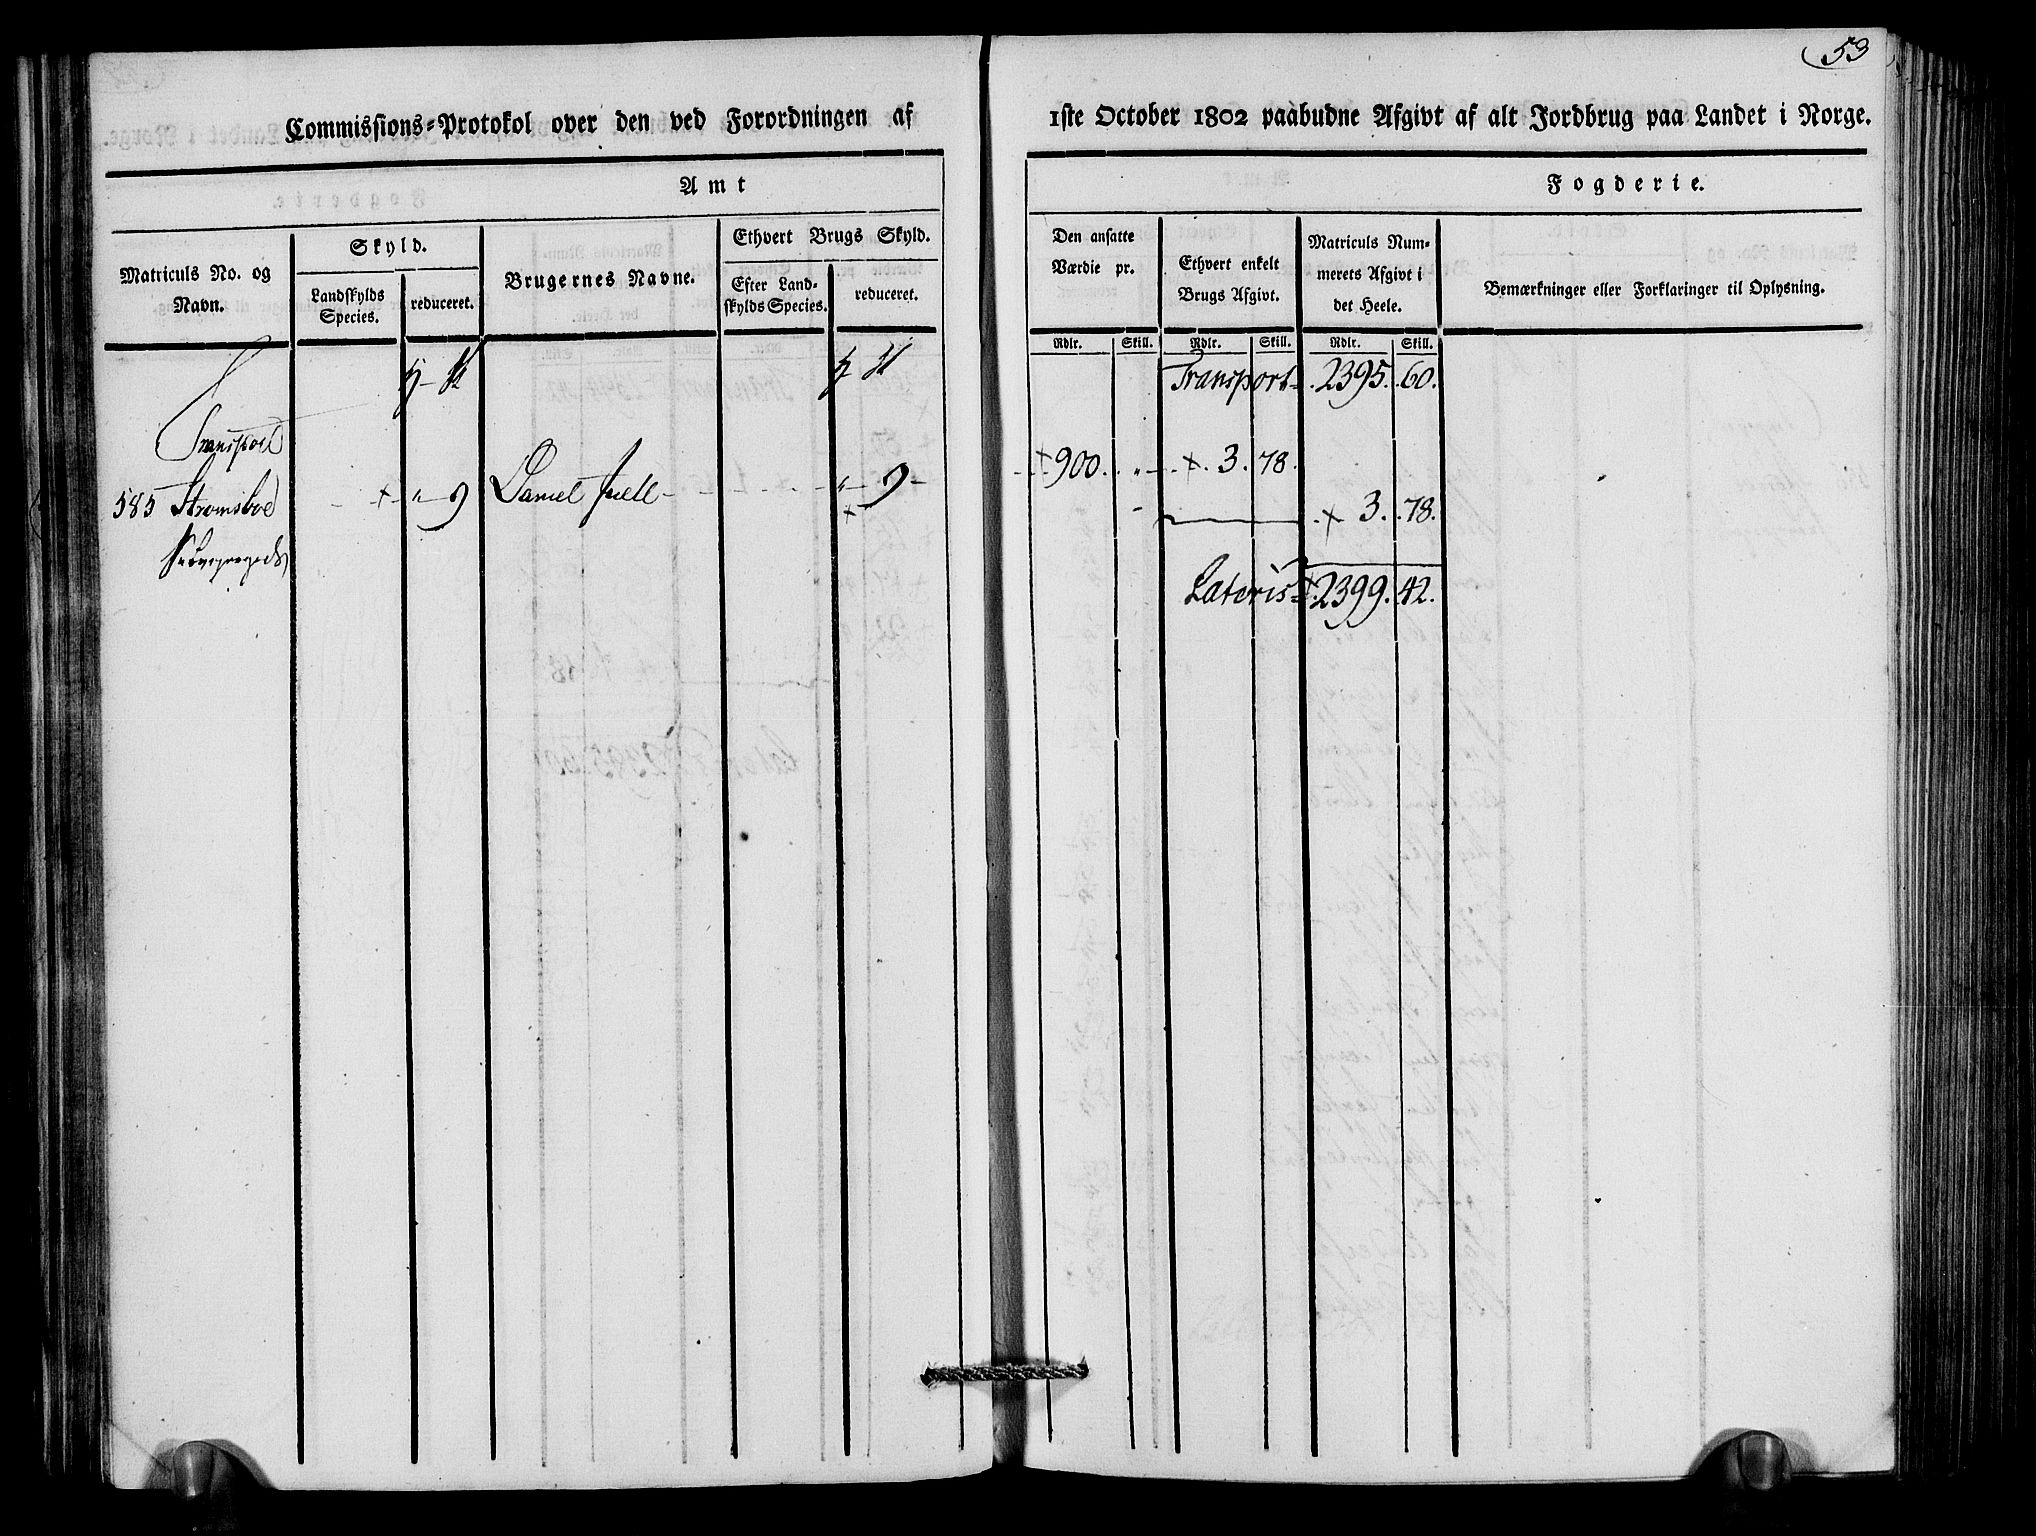 53
Commissions=Protokol over den ved Forordningen af 1ste October 1802 paabudne Afgivt af alt Jordbrug paa Landet i Norge.
Amt
Fogderie.
Matriculs No. og
Navn.
Skyld.
Landskylds
Species.
reduceret.
Brugernes Navne.
Ethvert Brugs Skyld.
Efter Land=
skylds Species.
reduceret.
Den ansatte
Værdie pr.
Ethvert enkelt
Brugs Afgivt.
Matriculs Num=
merets Afgivt i
det Heele.
Bemærkninger eller Forklaringer til Oplysning.
Rdlr. Skill. Rdlr. Skill. Rdlr. Skill.
Transport 2395. 60.
Transport
585 Stromsboe 9 Daniel Juell 9 900. " 3. 78.
3. 78.
Lateris 2399. 42.